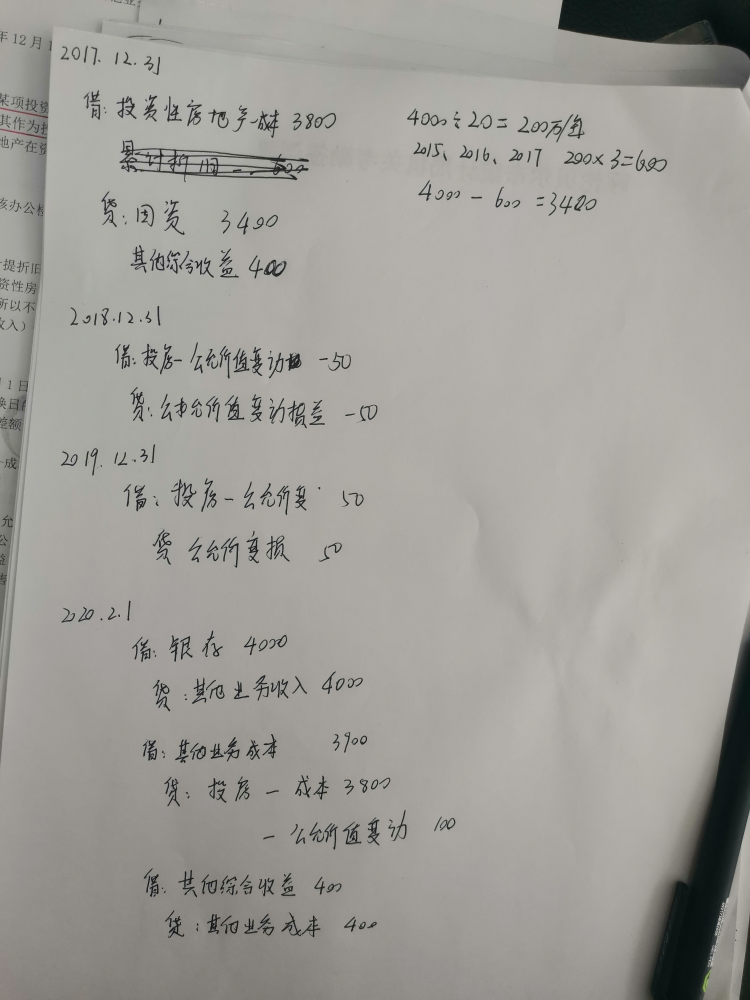 年12月1
某项投资
其作为投
地产在资
该办公楼
计提折旧
资性房
所以不
收入）
月1日
换日的
差额
成
允
公
益
2017.12.31
借:投资性房地产-成本 3800
累计折旧 600
贷:固资 3400
其他综合收益 400
4000÷20=200万/年
2015、2016、2017 200×3=600
4000-600=3400
2018.12.31
借:投房-公允价值变动 -50
贷:公允价值变动损益 -50
2019.12.31
借:投房-公允价变 50
贷 公允价变损 50
2020.2.1
借:银存 4000
贷:其他业务收入 4000
借:其他业务成本 3900
贷:投房-成本 3800
-公允价值变动 100
借:其他综合收益 400
贷:其他业务成本 400